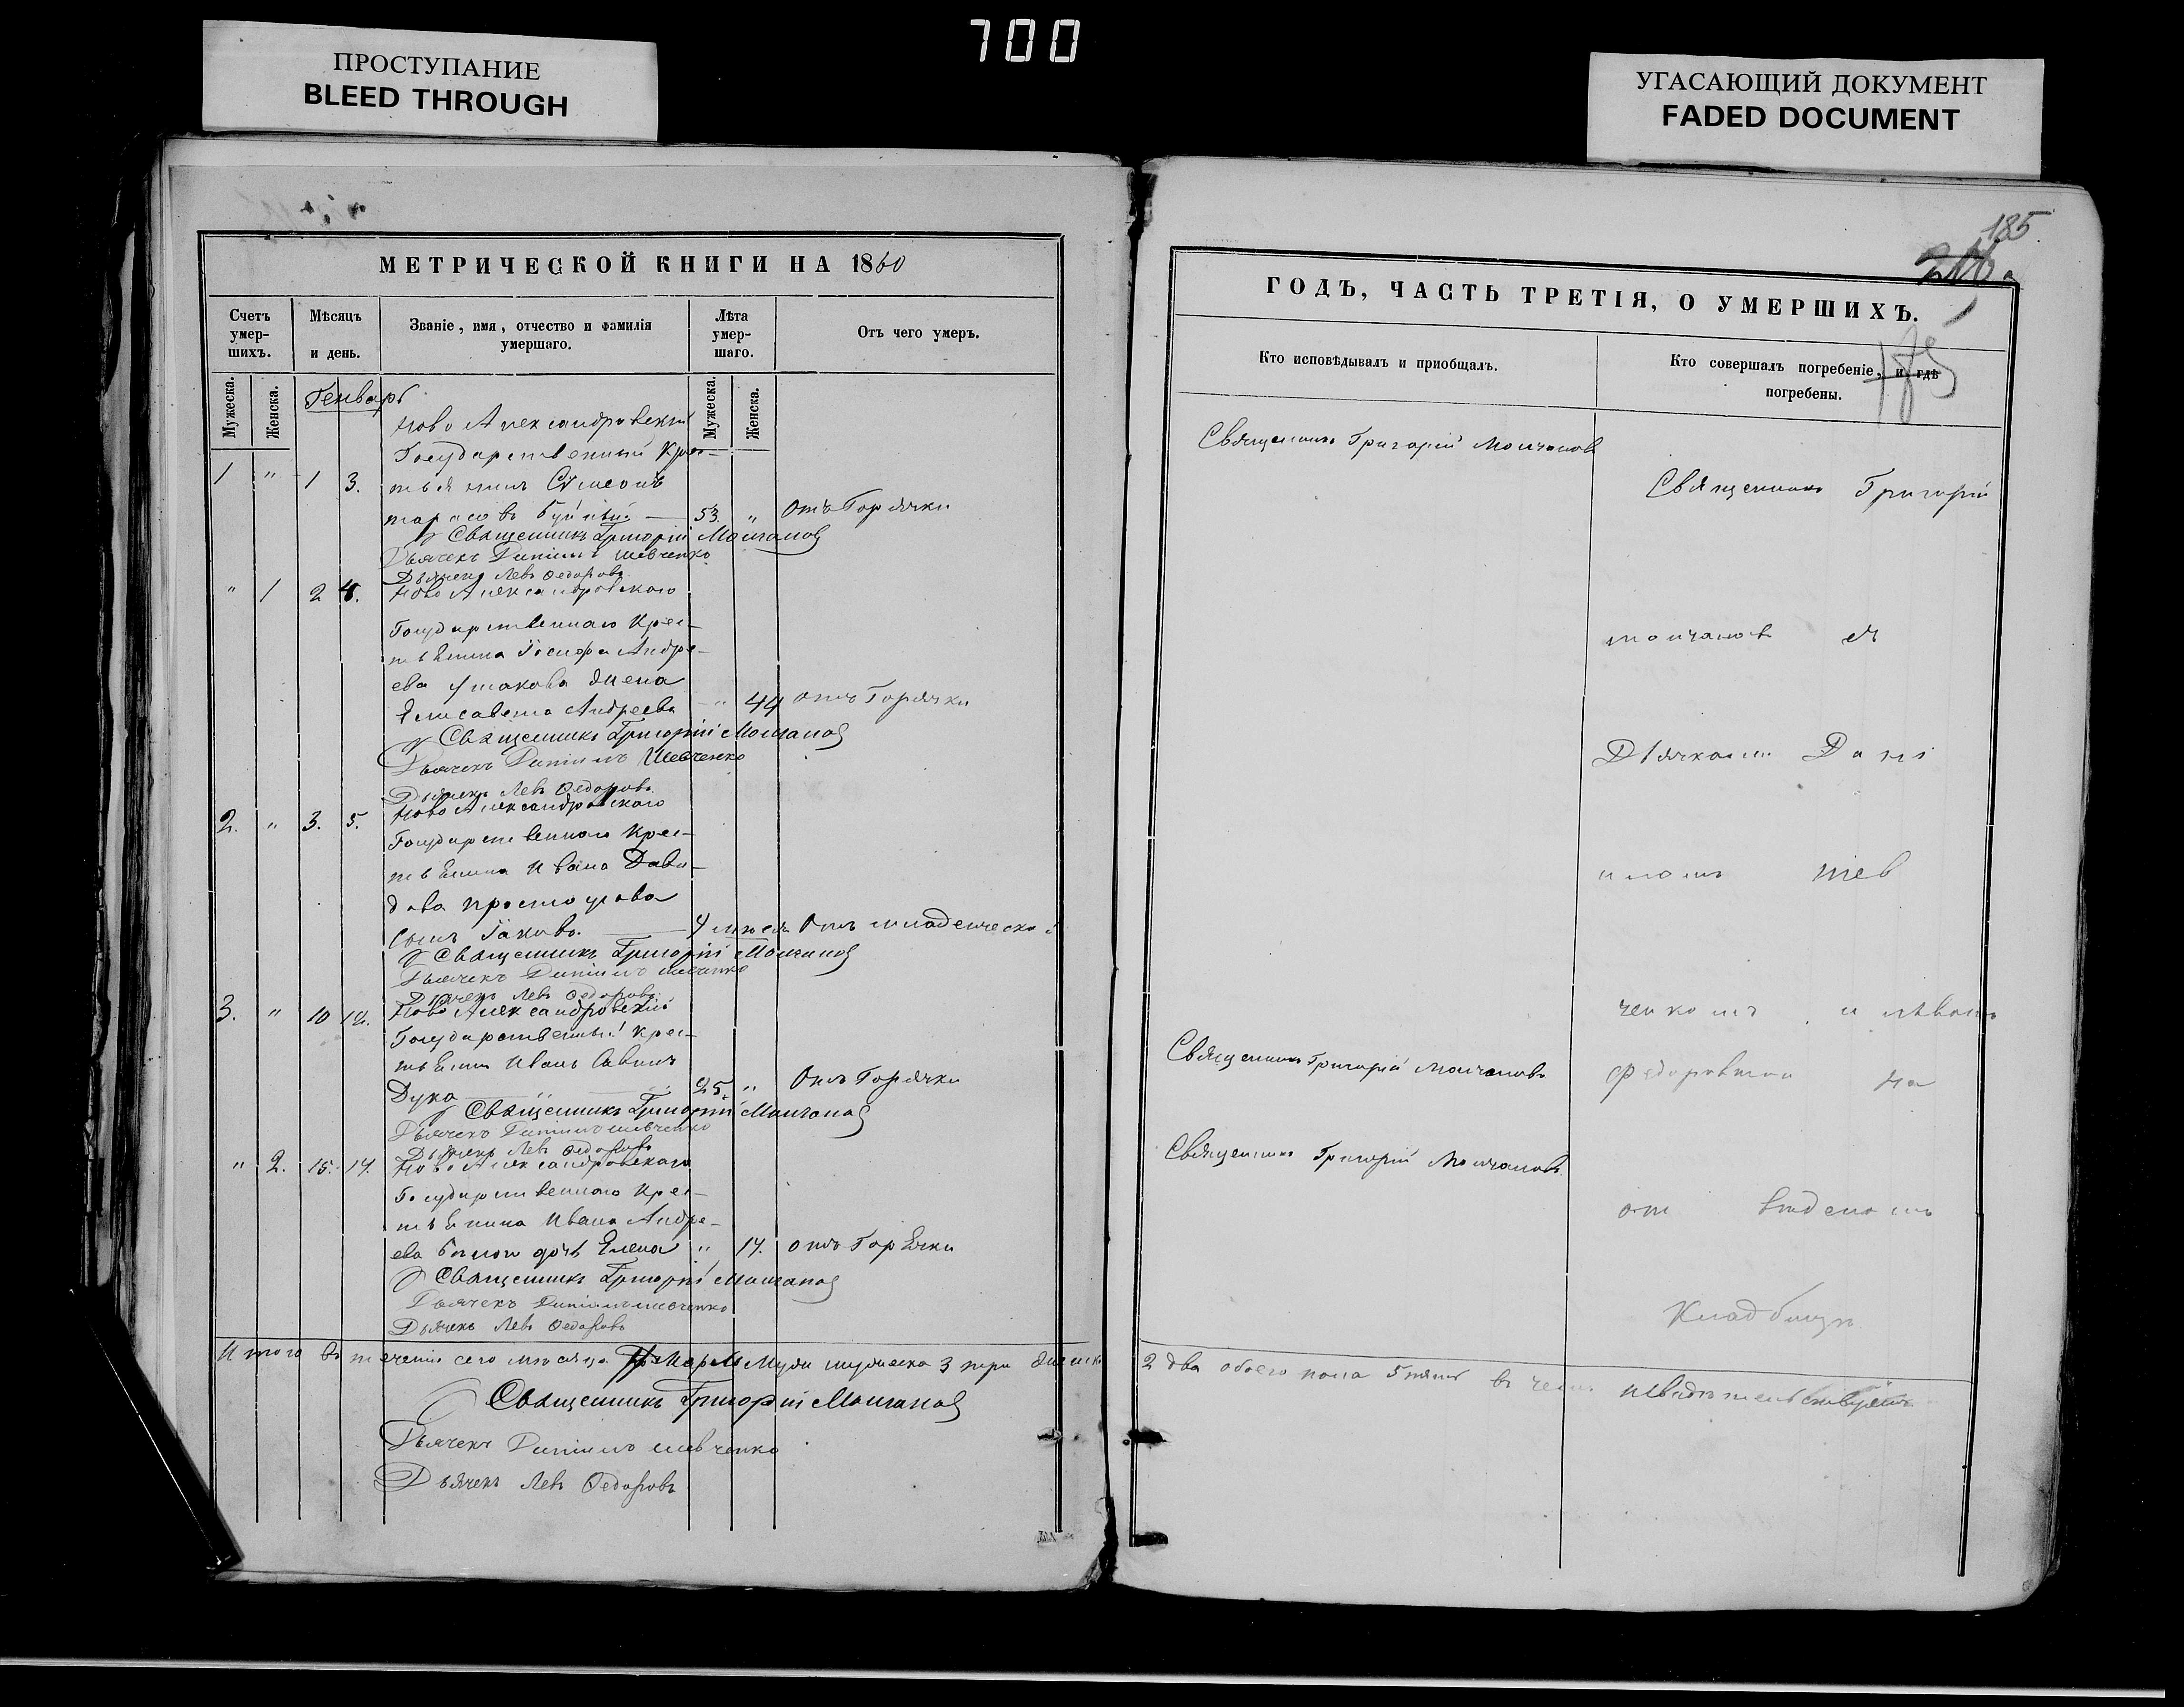 700
ПРОСТУПАНИЕ
BLEED THROUGH
УГАСАЮЩИЙ ДОКУМЕНТ
FADED DOCUMENT
МЕТРИЧЕСКОЙ КНИГИ НА 1860
Счетъ умер-шихъ.
Мѣсяцъ и день.
Званіе, имя, отчество и фамилія умершаго.
Лѣта умер-шаго.
Отъ чего умеръ.
Мужеска.
Женска.
Мужеска.
Женска.
Генварь
Ново Александровскій
Государственный Крес-
1 " 1 3. тьянинъ Сумеонъ
тарасовъ 53 " Отъ Горячки
Священникъ Григорій Молчановъ
Дьячекъ Даніилъ Шевченко
Дьячекъ Левъ Федоровъ
" 1 2 4. Ново Александровскаго
Государственнаго Крес-
тьянина Іосифа Андре-
ева Ушакова жена
Елисавета Андреева " 44 отъ Горячки
Священникъ Григорій Молчановъ
Дьячекъ Даніилъ Шевченко
Дьячекъ Левъ Федоровъ
2. " 3. 5. Ново Александровскаго
Государственнаго Крес-
тьянина Ивана Дави-
дова
сынъ Іаковъ. Отъ младенческой
Священникъ Григорій Молчановъ
Дьячекъ Даніилъ Шевченко
Дьячекъ Левъ Федоровъ
3. " 10 12. Ново Александровскій
Государственный Крес-
тьянинъ Иванъ Савинъ
Дука 25. " Отъ Горячки
Священникъ Григорій Молчановъ
Дьячекъ Даніилъ Шевченко
Дьячекъ Левъ Федоровъ
" 2. 15. 17. Ново Александровскаго
Государственнаго Крес-
тьянина Ивана Андре-
ева дочь Елена " 17. отъ Горячки
Священникъ Григорій Молчановъ
Дьячекъ Даніилъ Шевченко
Дьячекъ Левъ Федоровъ
Итого въ теченіи сего мѣсяца мужеска 3 три женска
Священникъ Григорій Молчановъ
Дьячекъ Даніилъ Шевченко
Дьячекъ Левъ Федоровъ
185
ГОДЪ, ЧАСТЬ ТРЕТІЯ, О УМЕРШИХЪ.
Кто исповѣдывалъ и приобщалъ.
Кто совершалъ погребеніе, и гдѣ погребены.
Священникъ Григорій Молчановъ
Священникъ Григорій
молчановъ съ
Дьячкомъ Дані
иломъ шев
ченкомъ и Львомъ
Священникъ Григорій Молчановъ
Федоровымъ на
Священникъ Григорій Молчановъ
Кладбищѣ
2 два обоего пола 5 пять въ чемъ